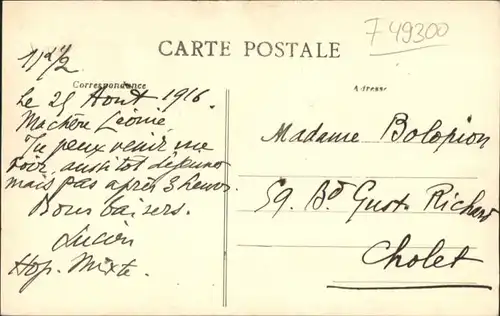 F 49300
CARTE POSTALE
Correspondance
Adresse
11h 1/2
Le 25 Août 1916.
Ma chère Léonie,
Tu peux venir me
voir, aussitôt déjeuner
mais pas après 3 heures.
Bons baisers.
Lucien
Hop. Mixte.
Madame Bolopion
59. Bd Gust. Richard
Cholet